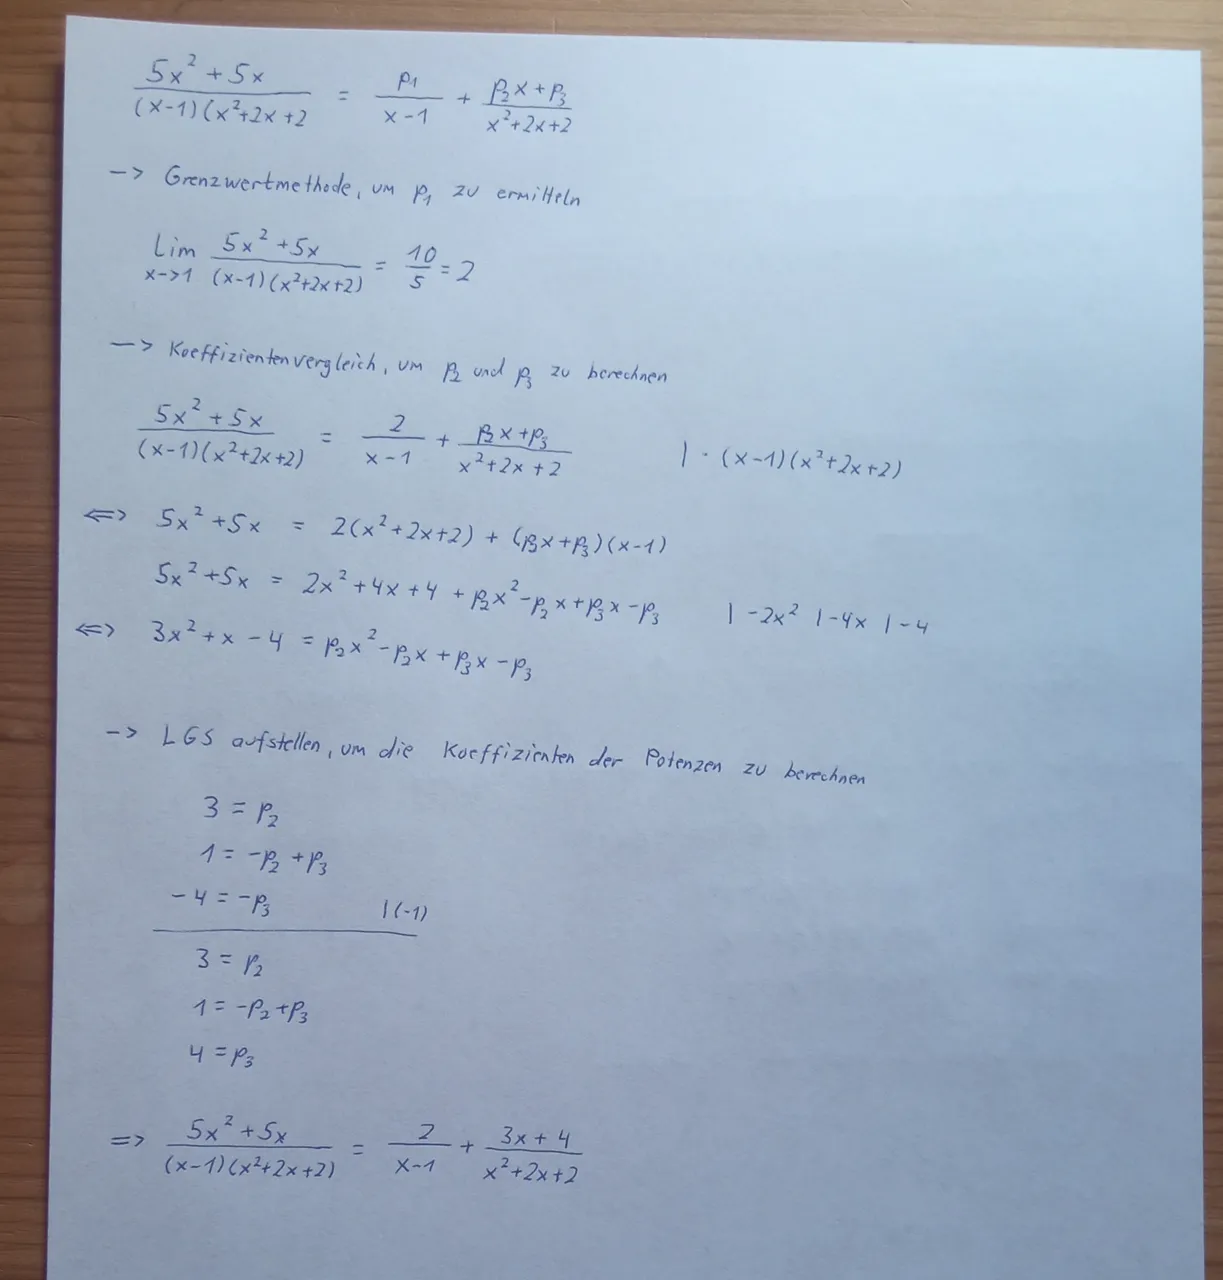 (5x² + 5x)/((x-1)(x²+2x+2) = p₁/(x-1) + (p₂x + p₃)/(x²+2x+2)
-> Grenzwertmethode, um p₁ zu ermitteln
Lim x->1 (5x² + 5x)/((x-1)(x²+2x+2)) = 10/5 = 2
-> Koeffizientenvergleich, um p₂ und p₃ zu berechnen
(5x² + 5x)/((x-1)(x²+2x+2)) = 2/(x-1) + (p₂x + p₃)/(x²+2x+2) | · (x-1)(x²+2x+2)
<=> 5x² + 5x = 2(x²+2x+2) + (p₂x + p₃)(x-1)
5x² + 5x = 2x² + 4x + 4 + p₂x² - p₂x + p₃x - p₃ | -2x² | -4x | -4
<=> 3x² + x - 4 = p₂x² - p₂x + p₃x - p₃
-> LGS aufstellen, um die Koeffizienten der Potenzen zu berechnen
3 = p₂
1 = -p₂ + p₃
-4 = -p₃ | (-1)
3 = p₂
1 = -p₂ + p₃
4 = p₃
=> (5x² + 5x)/((x-1)(x²+2x+2)) = 2/(x-1) + (3x + 4)/(x²+2x+2)